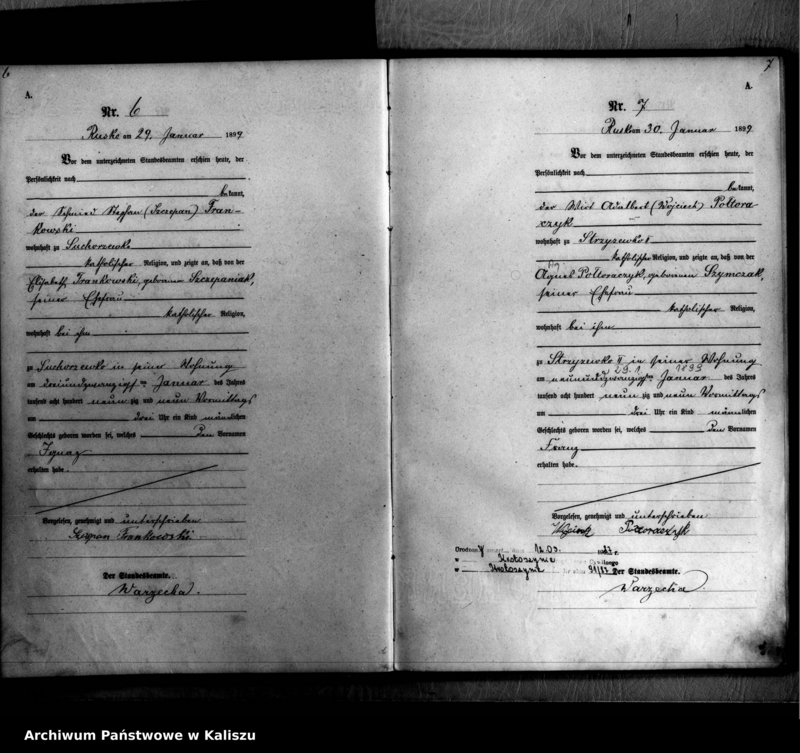 6
A.
Nr. 6
Rusko am 29. Januar 1899
Vor dem unterzeichneten Standesbeamten erschien heute, der
Persönlichkeit nach
bekannt,
der Schmied Stephan (Szczepan) Fran-
kowski
wohnhaft zu Suchorzewko
katholischer Religion, und zeigte an, daß von der
Elisabeth Frankowski, geborenen Szczepaniak,
seiner Ehefrau
katholischer Religion,
wohnhaft bei ihm
zu Suchorzewko in seiner Wohnung
am dreiundzwanzigsten Januar des Jahres
tausend acht hundert neunzig und neun Vormittags
um drei Uhr ein Kind männlichen
Geschlechts geboren worden sei, welches den Vornamen
Ignaz
erhalten habe.
Vorgelesen, genehmigt und unterschrieben
Szczepan Frankowski
Der Standesbeamte.
Warzecha.
7
A.
Nr. 7
Rusko am 30. Januar 1899
Vor dem unterzeichneten Standesbeamten erschien heute, der
Persönlichkeit nach
bekannt,
der Wirt Adalbert (Wojciech) Poltora-
czyk
wohnhaft zu Strzyzewko II
katholischer Religion, und zeigte an, daß von der
Poltoraczyk, geborenen Szymczak,
seiner Ehefrau
katholischer Religion,
wohnhaft bei ihm
zu Strzyzewko II in seiner Wohnung
29.1. 1899
am neunundzwanzigsten Januar des Jahres
tausend acht hundert neunzig und neun Vormittags
um drei Uhr ein Kind männlichen
Geschlechts geboren worden sei, welches den Vornamen
Franz
erhalten habe.
Vorgelesen, genehmigt und unterschrieben
Poltoraczyk
12.03.
w Krotoszynie
w Krotoszynie
Der Standesbeamte.
Warzecha.
Archiwum Państwowe w Kaliszu